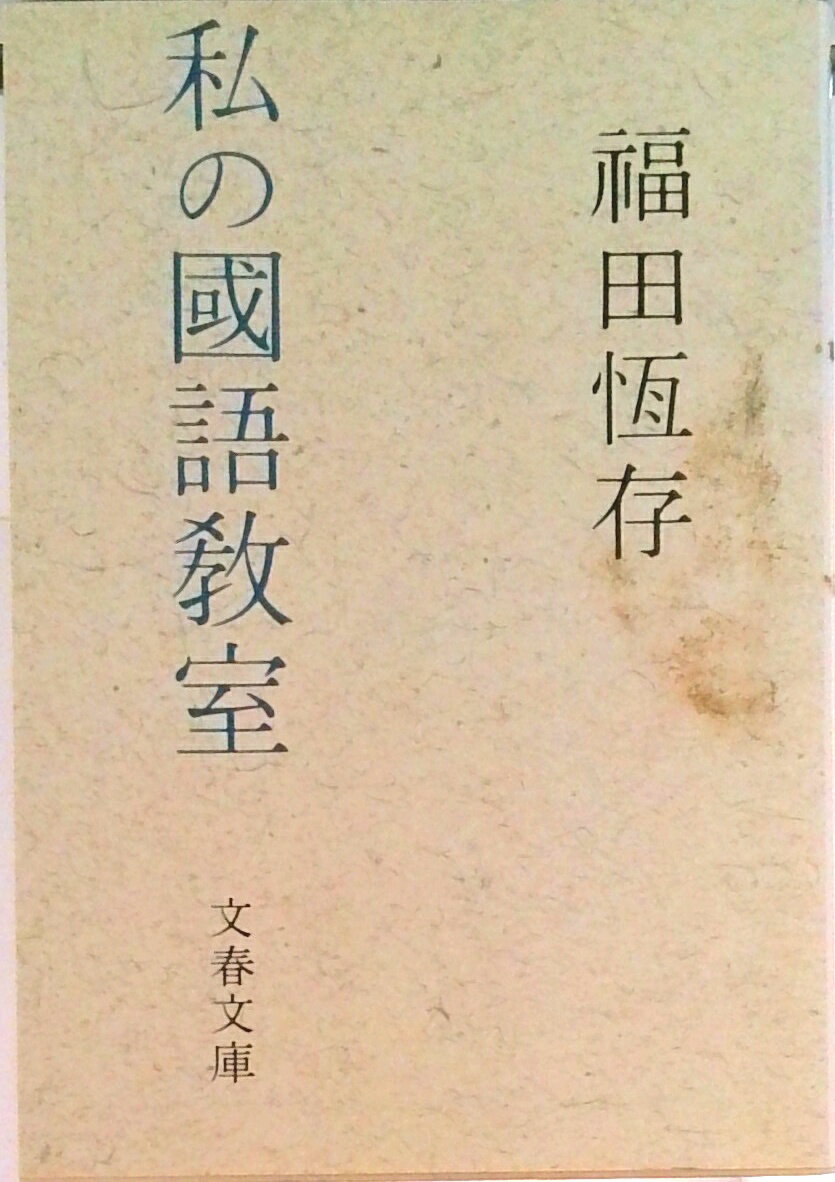 福田恆存
私の國語敎室
文春文庫